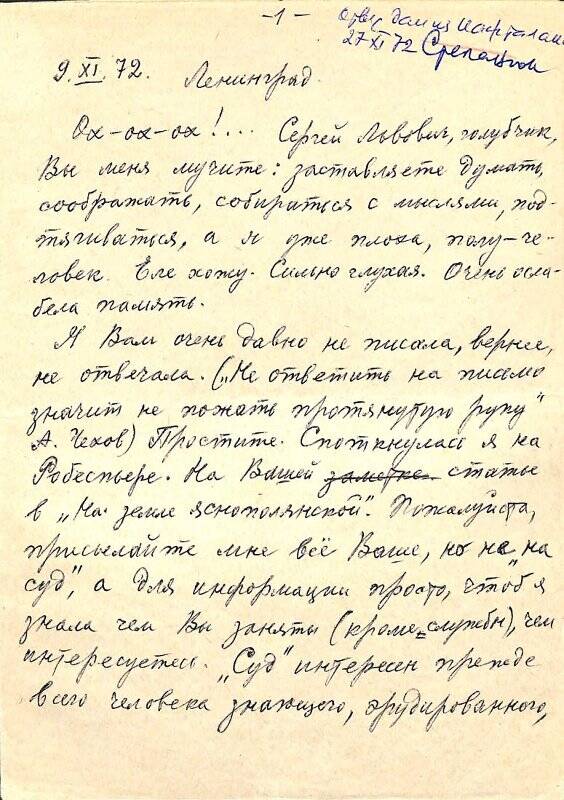 -1-
Отв. дан из Нафталана
27 XI 72 Степанов
9. XI. 72. Ленинград.
Ох-ох-ох!... Сергей Львович, голубчик,
Вы меня мучите: заставляете думать,
соображать, собираться с мыслями, под-
тягиваться, а я уже плоха, полу-че-
ловек. Еле хожу. Сильно глухая. Очень осла-
бела память.
Я Вам очень давно не писала, вернее,
не отвечала. („Не ответить на письмо
значит не пожать протянутую руку"
А. Чехов) Простите. Споткнулась я на
Робеспьере. На Вашей заметке статье
в „На земле яснополянской". Пожалуйста,
присылайте мне всё Ваше, но не „на
суд", а для информации просто, чтоб я
знала чем Вы заняты (кроме службы), чем
интересуетесь. „Суд" интересен прежде
всего человека знающего, эрудированного,